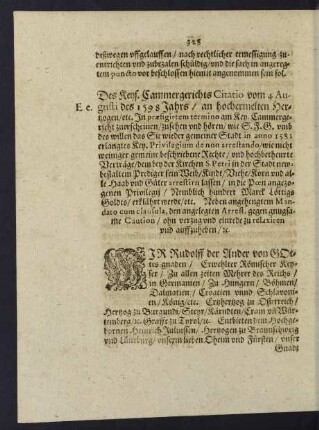 328
deßwegen uffgelauffen / nach rechtlicher ermessigung zu-
entrichten und zubezalen schüldig / und die sach in angereg-
tem puncto vor beschlossen hiemit angenommen sein sol.
Des Keys. Cammergerichts Citatio vom 4 Au-
E e. gusti des 1598 Jahrs / an hochermelten Her-
tzogen / etc. In præfigirtem termino am Key. Cammerge-
richt zuerscheinen / zusehen und hören / wie S. F. G. umb
des willen das Sie wieder gemeiner Stadt in anno 1581
erlangtes Key. Privilegium de non arrestando / wie nicht
weiniger gemeine beschriebene Rechte / und hochbetheuerte
Verträge / dem bey der Kirchen S. Petri in der Stadt new-
bestaltem Prediger sein Weib / Kinde / Viehe / Korn und al-
le Haab und Güter arrestiren lassen / in die Poen angezo-
genen Privilegij / Nemblich hundert Marck Löttigs
Goldts / erklährt werde / etc. Neben angehengtem Man-
dato cum clausula, den angelegten Arrest, gegen gnugsa-
me Caution / ohn verzug und einrede zu relaxiren
und auffzuheben / etc.
WJR Rudolff der Ander von GOt-
tes gnaden / Erwehlter Römischer Key-
ser / Zu allen zeiten Mehrer des Reichs /
in Germanien / Zu Hungern / Böhmen /
Dalmatien / Croatien unnd Schlavoni-
en / König / etc. Ertzhertzog zu Osterreich /
Hertzog zu Burgundi / Steyr / Kärndten / Crain und Wür-
temberg / etc. Graffe zu Tyrol / etc. Entbieten dem Hochge-
bornen Heinrich Juliussen / Hertzogen zu Braunschweig
und Lüneburg / unserm lieben Oheim und Fürsten / unser
Gnadt